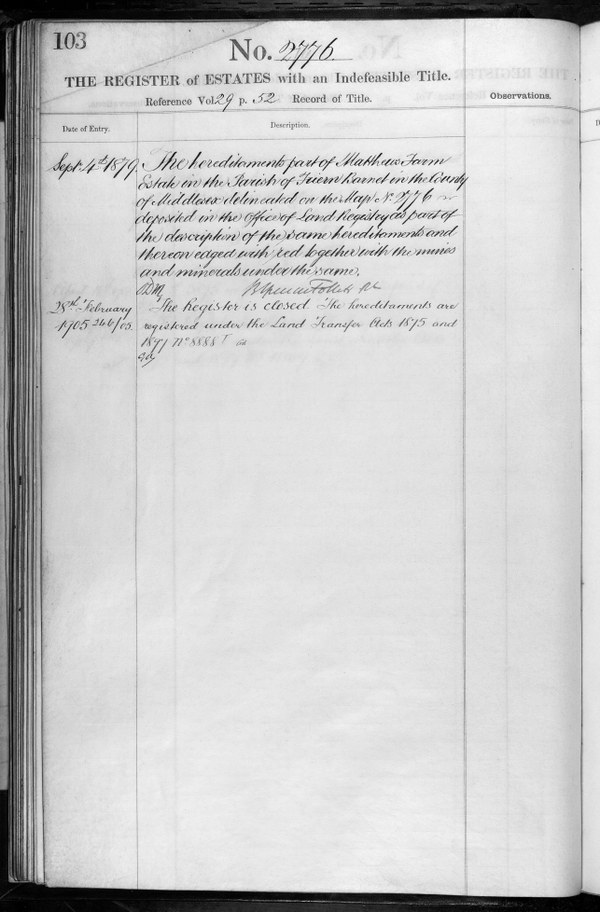 103
No. 2776.
THE REGISTER of ESTATES with an Indefeasible Title.
Reference Vol 29 p. 52 Record of Title.
Observations.
Date of Entry.
Description.
Sept. 4th 1879.
The hereditaments part of Matthews Farm
Estate in the Parish of Friern Barnet in the County
of Middlesex delineated on the Map No. 2776
deposited in the Office of Land Registry as part of
the description of the same hereditaments and
thereon edged with red together with the mines
and minerals under the same.
28th February
1905 246/05.
The Register is closed. The hereditaments are
registered under the Land Transfer Acts 1875 and
1897 No. 8888